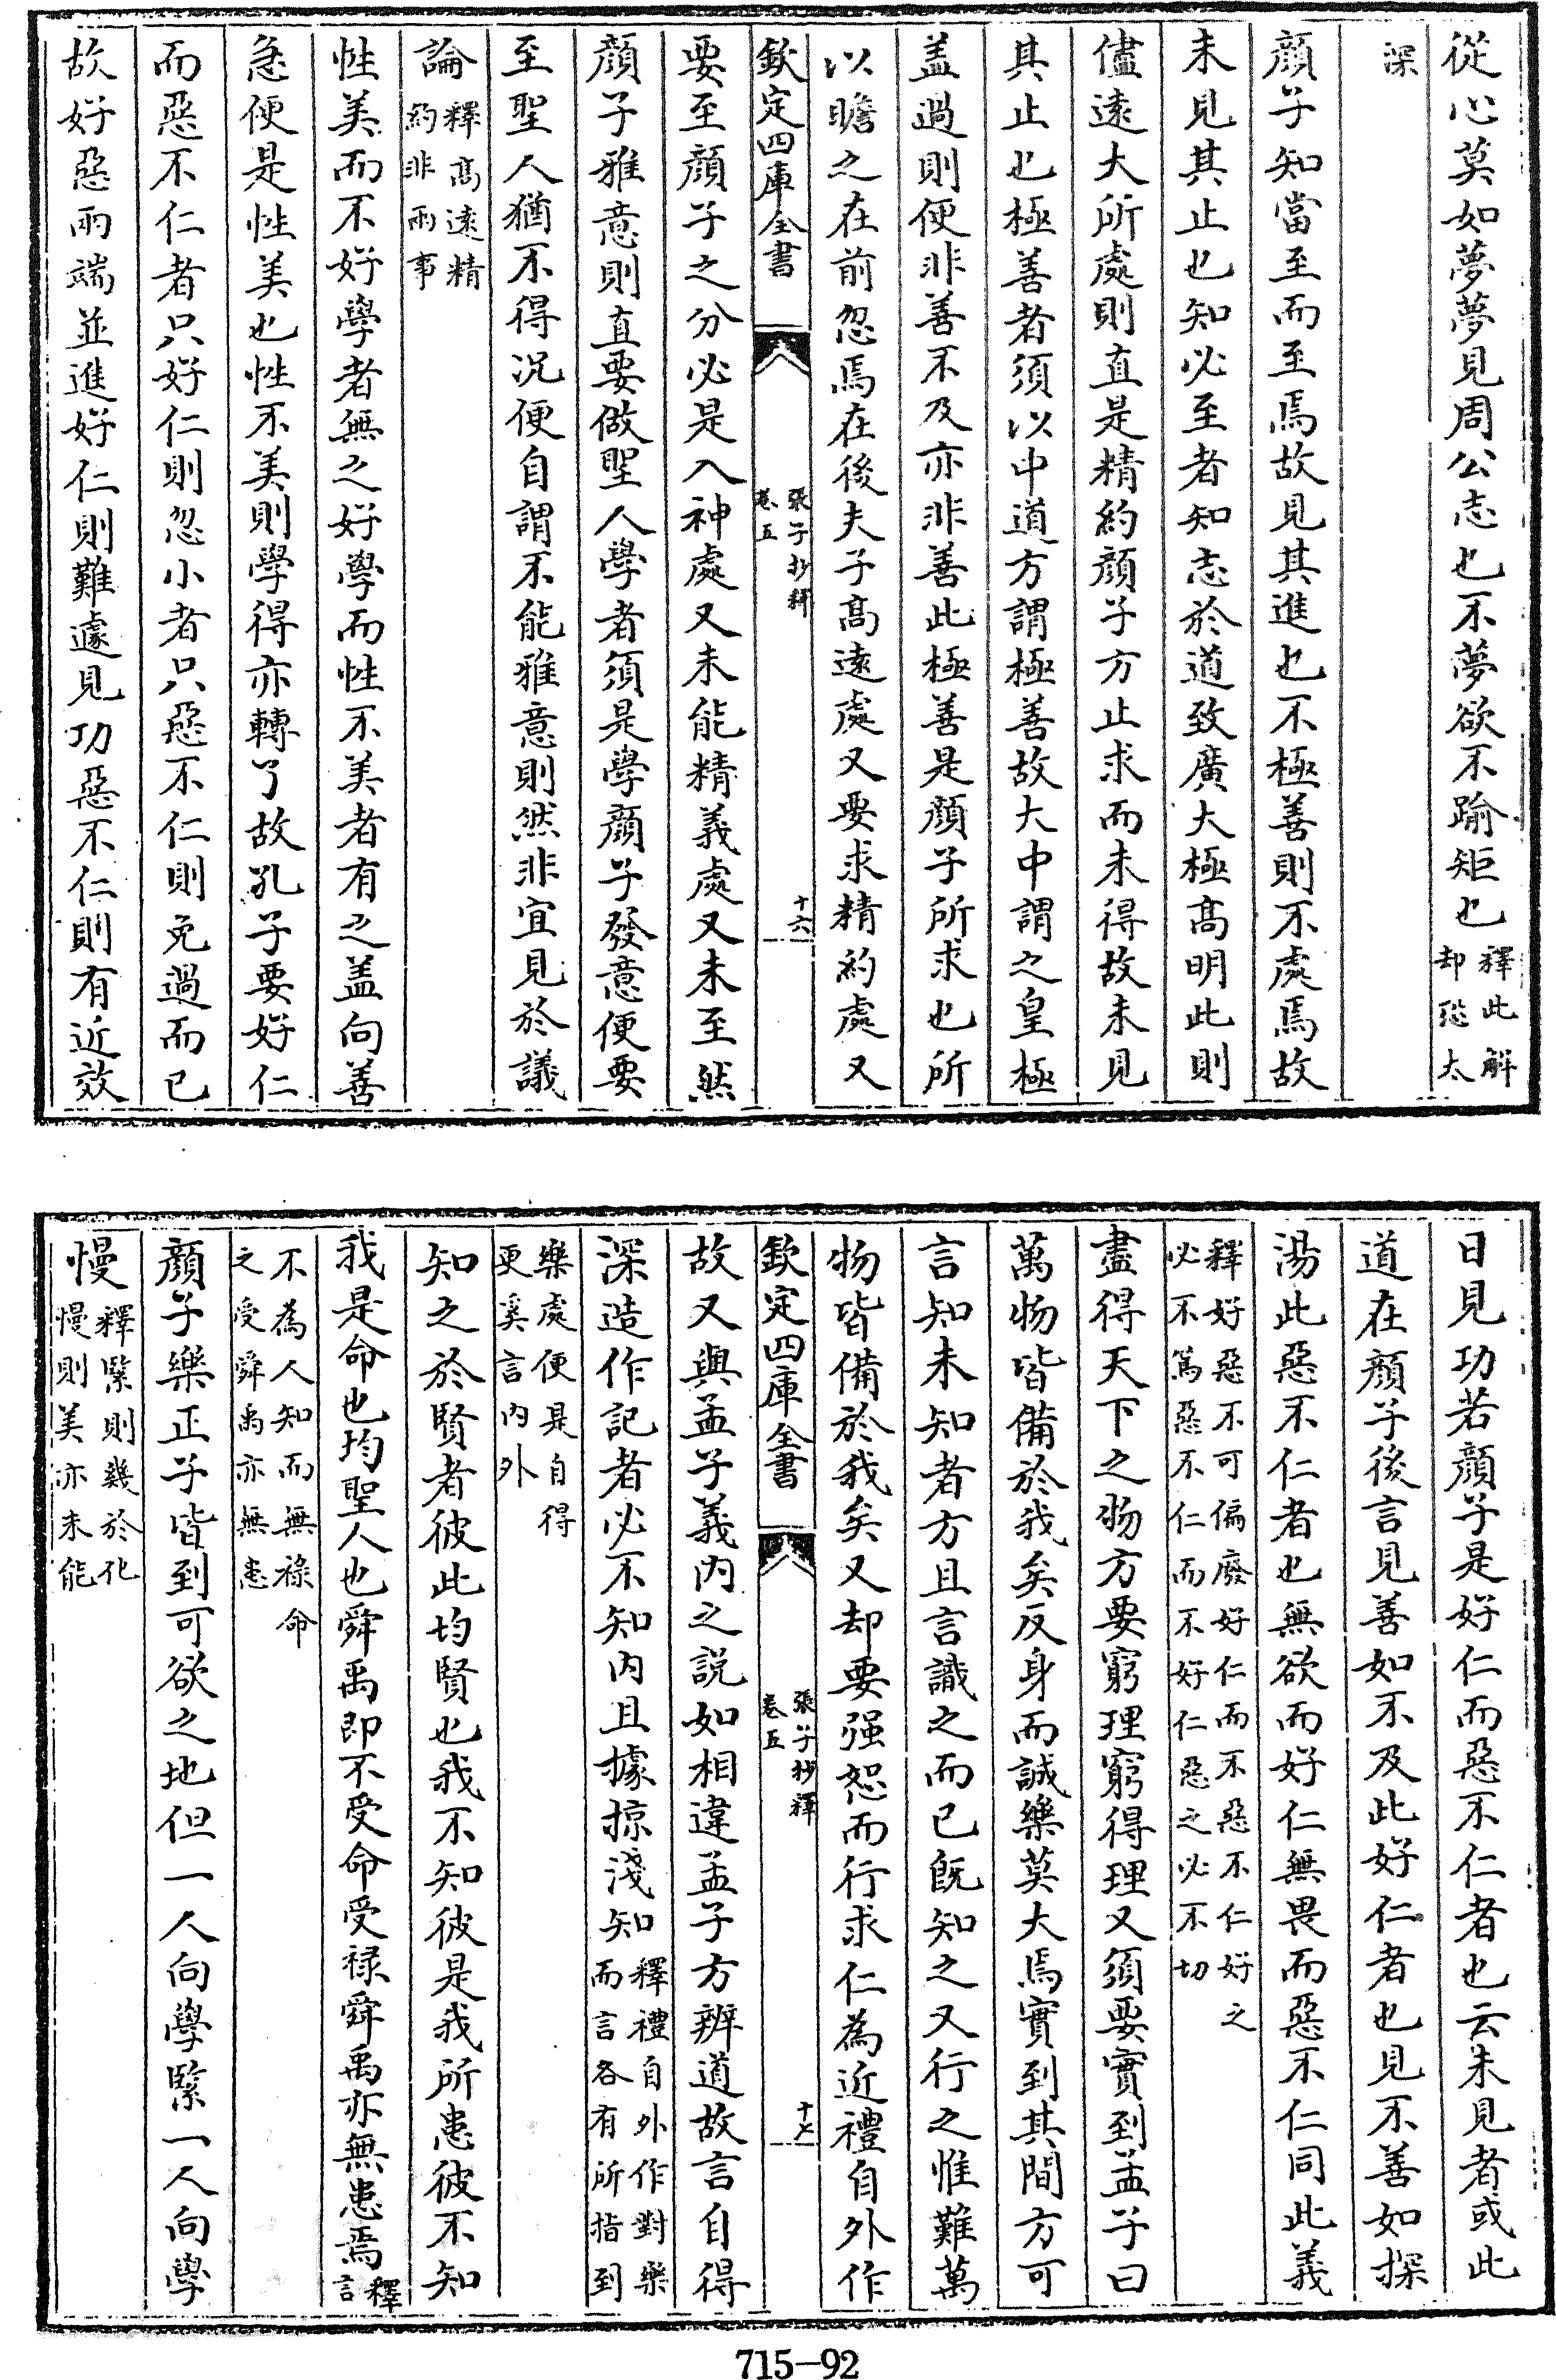 從心莫如夢夢見周公志也不夢欲不踰矩也釋此解却恐太
深
顏子知當至而至焉故見其進也不極善則不處焉故
未見其止也知必至者知志於道致廣大極髙明此則
儘逺大所處則直是精約顏子方止求而未得故未見
其止也極善者須以中道方謂極善故大中謂之皇極
盖過則便非善不及亦非善此極善是顏子所求也所
以瞻之在前忽焉在後夫子髙逺處又要求精約處又
欽定四庫全書
張子抄釋
卷五
十六
要至顏子之分必是入神處又未能精義處又未至然
顏子雅意則直要做聖人學者須是學顏子發意便要
至聖人猶不得況便自謂不能雅意則然非宜見於議
論釋髙逺精約非兩事
性美而不好學者無之好學而性不美者有之盖向善
急便是性美也性不美則學得亦轉了故孔子要好仁
而惡不仁者只好仁則忽小者只惡不仁則免過而已
故好惡兩端並進好仁則難遽見功惡不仁則有近效
日見功若顏子是好仁而惡不仁者也云未見者或此
道在顏子後言見善如不及此好仁者也見不善如探
湯此惡不仁者也無欲而好仁無畏而惡不仁同此義
釋好惡不可偏廢好仁而不惡不仁好之
必不篤惡不仁而不好仁惡之必不切
盡得天下之物方要窮理窮得理又須要實到孟子曰
萬物皆備於我矣反身而誠樂莫大焉實到其間方可
言知未知者方且言識之而已既知之又行之惟難萬
物皆備於我矣又却要强恕而行求仁為近禮自外作
欽定四庫全書
張子抄釋
卷五
十七
故又與孟子義内之說如相違孟子方辨道故言自得
深造作記者必不知内且據掠淺知釋禮自外作對樂而言各有所指到
樂處便是自得
更奚言内外
知之於賢者彼此均賢也我不知彼是我所患彼不知
我是命也均聖人也舜禹即不受命受禄舜禹亦無患焉釋言
不為人知而無禄命
之受舜禹亦無患
顏子樂正子皆到可欲之地但一人向學緊一人向學
慢釋緊則幾於化慢則美亦未能
715-92